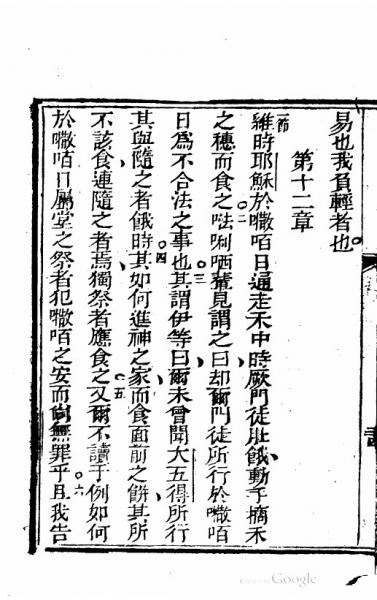 易也我負輕者也
第十二章
一節 維時耶穌於嗽咟日逼走禾中時厥門徒肚餓動手摘禾
之穗而食之二𠵽唎哂輩見謂之曰却爾門徒所行於嗽咟
日爲不合法之事也三其謂伊等曰爾未曾聞大五得所行
其與隨之者餓時四其如何進神之家而食面前之餅其所
不該食連隨之者焉獨祭者應食之五又爾不讀于例如何
於嗽咟日屬堂之祭者犯嗽咟之安而尚無罪乎六且我告
Google